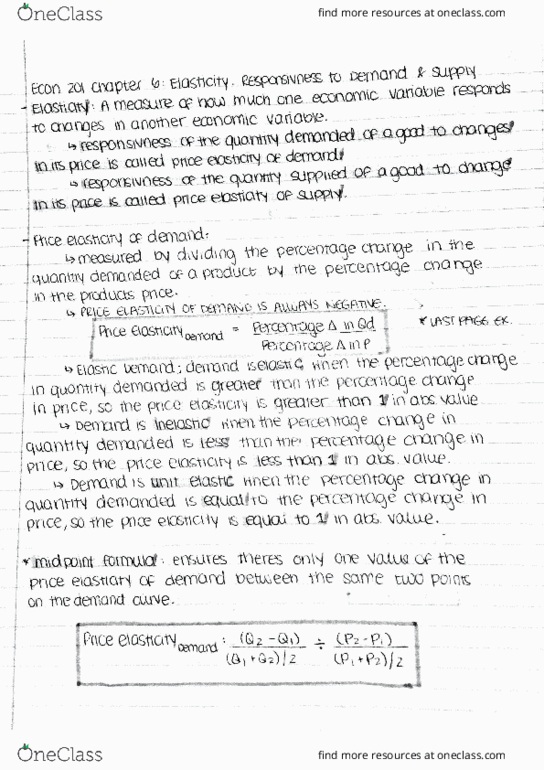 OneClass
find more resources at oneclass.com
Econ 201 Chapter 6: Elasticity. Responsivness to Demand & Supply
- Elasticity: A measure of how much one economic variable responds
to changes in another economic variable.
↳ responsivness of the quantity demanded of a good to changes
in its price is called price elasticity of demand.
↳ responsivness of the quantity supplied of a good to change
in its price is called price elasticity of supply.
- Price elasticity of demand:
↳ measured by dividing the percentage change in the
quantity demanded of a product by the percentage change
in the products price.
↳ PRICE ELASTICITY OF DEMAND IS ALWAYS NEGATIVE.
Price elasticity Demand = Percentage Δ in Qd
Percentage Δ in P
* LAST PAGE EX.
↳ Elastic Demand; demand is elastic when the percentage change
in quantity demanded is greater than the percentage change
in price, so the price elasticity is greater than 1 in abs value
↳ Demand is inelastic when the percentage change in
quantity demanded is less than the percentage change in
price, so the price elasticity is less than 1 in abs. value.
↳ Demand is unit elastic when the percentage change in
quantity demanded is equal to the percentage change in
price, so the price elasticity is equal to 1 in abs. value.
* midpoint formula: ensures theres only one value of the
price elasticity of demand between the same two points
on the demand curve.
Price elasticity Demand: (Q2-Q1) / (Q1+Q2)/2 ÷ (P2-P1) / (P1+P2)/2
OneClass
find more resources at oneclass.com